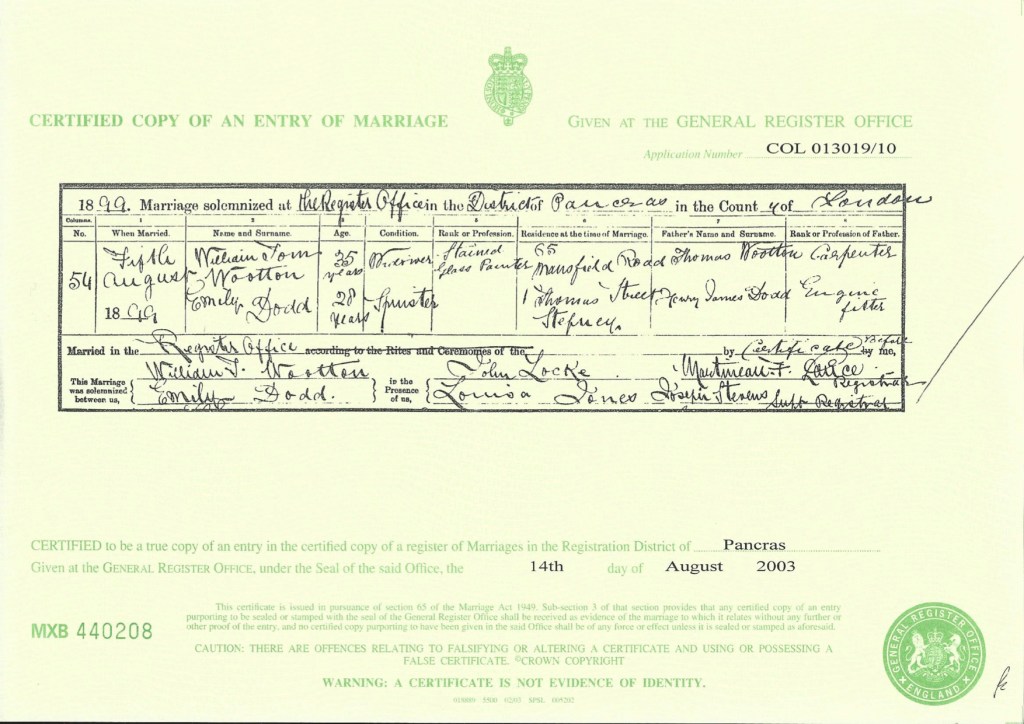 CERTIFIED COPY OF AN ENTRY OF MARRIAGE
GIVEN AT THE GENERAL REGISTER OFFICE
Application Number COL 013019/10
1899. Marriage solemnized at the Register Office in the District of Pancras in the County of London
Columns. 1 2 3 4 5 6 7 8
No. When Married. Name and Surname. Age. Condition. Rank or Profession. Residence at the time of Marriage. Father's Name and Surname. Rank or Profession of Father.
54 Fifth August 1899 William Tom Wootton 35 years Widower Stained Glass Painter 65 Mansfield Road Thomas Wootton Carpenter
Emily Dodd 28 years Spinster 1 Thomas Street Stepney. Henry James Dodd Engine fitter
Married in the Register Office according to the Rites and Ceremonies of the by Certificate before by me,
This Marriage was solemnized between us, William T. Wootton Emily Dodd. in the Presence of us, John Locke Louisa Jones Joseph Stevens Registrar Supt Registrar
CERTIFIED to be a true copy of an entry in the certified copy of a register of Marriages in the Registration District of Pancras
Given at the GENERAL REGISTER OFFICE, under the Seal of the said Office, the 14th day of August 2003
MXB 440208
This certificate is issued in pursuance of section 65 of the Marriage Act 1949. Sub-section 3 of that section provides that any certified copy of an entry
purporting to be sealed or stamped with the seal of the General Register Office shall be received as evidence of the marriage to which it relates without any further or
other proof of the entry, and no certified copy purporting to have been given in the said Office shall be of any force or effect unless it is sealed or stamped as aforesaid.
CAUTION: THERE ARE OFFENCES RELATING TO FALSIFYING OR ALTERING A CERTIFICATE AND USING OR POSSESSING A
FALSE CERTIFICATE. ©CROWN COPYRIGHT
WARNING: A CERTIFICATE IS NOT EVIDENCE OF IDENTITY.
GENERAL REGISTER OFFICE
ENGLAND